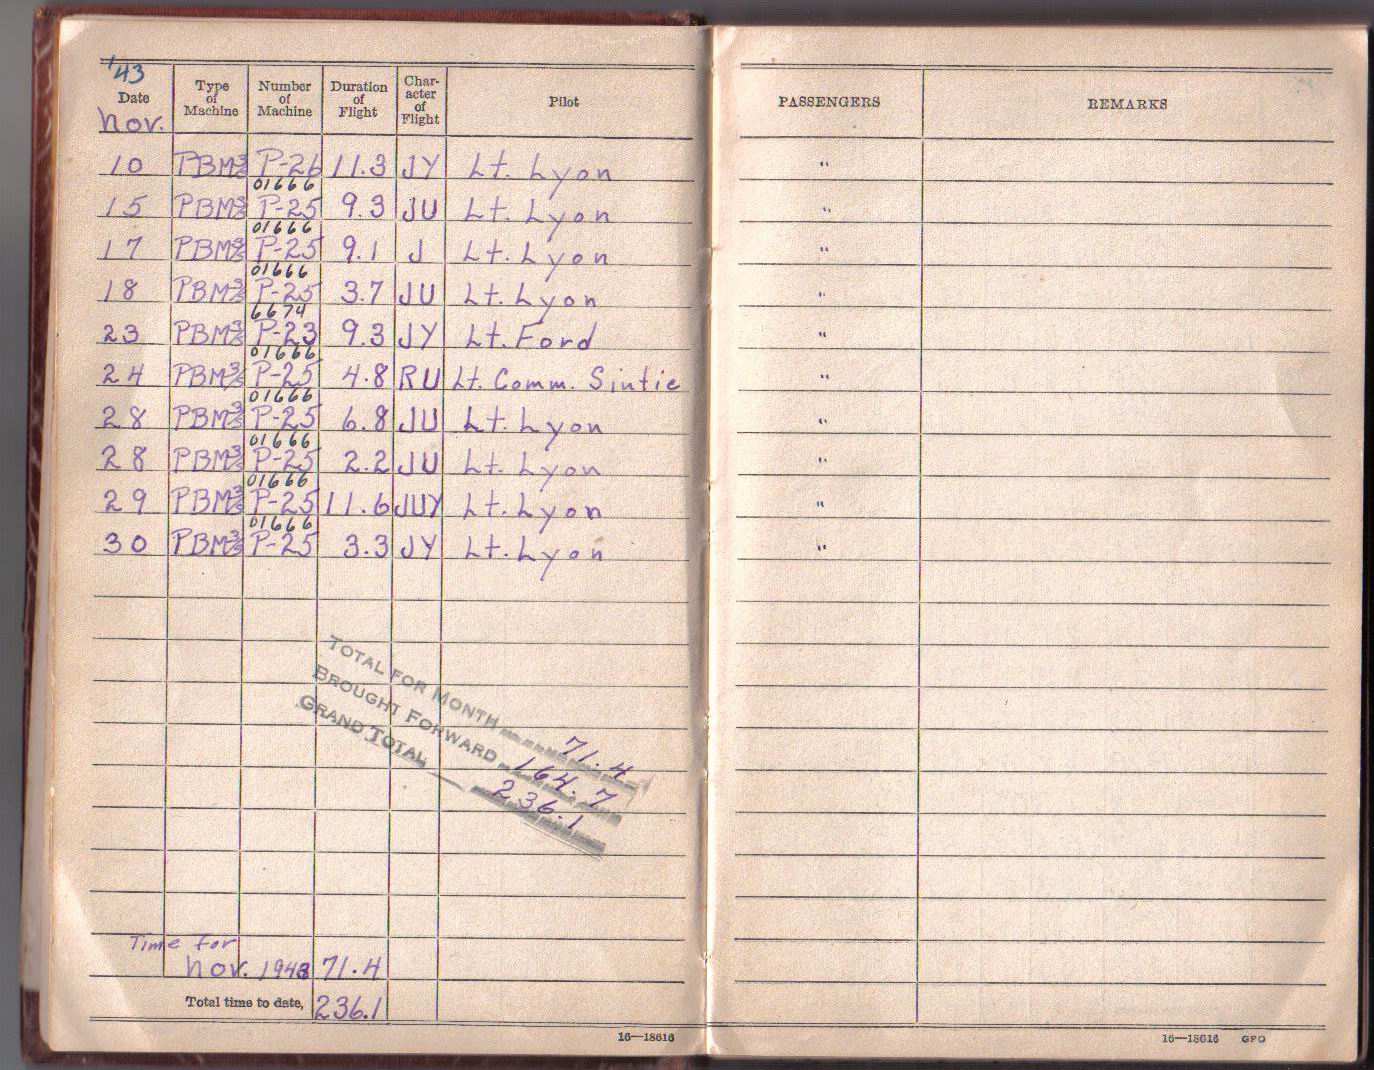 '43
Date Type of Machine Number of Machine Duration of Flight Char-acter of Flight Pilot PASSENGERS REMARKS
Nov.
10 PBM3S P-26 11.3 JY Lt. Lyon "
01666
15 PBM3S P-25 9.3 JU Lt. Lyon "
01666
17 PBM3S P-25 9.1 J Lt. Lyon "
01666
18 PBM3S P-25 3.7 JU Lt. Lyon "
6674
23 PBM3S P-23 9.3 JY Lt. Ford "
01666
24 PBM3S P-25 4.8 RU Lt. Comm. Sintic "
01666
28 PBM3S P-25 6.8 JU Lt. Lyon "
01666
28 PBM3S P-25 2.2 JU Lt. Lyon "
01666
29 PBM3S P-25 11.6 JUY Lt. Lyon "
01666
30 PBM3S P-25 3.3 JY Lt. Lyon "
TOTAL FOR MONTH 71.4
BROUGHT FORWARD 164.7
GRAND TOTAL 236.1
Time for
Nov. 1943 71.4
Total time to date, 236.1
16—18616 16—18616 GPO